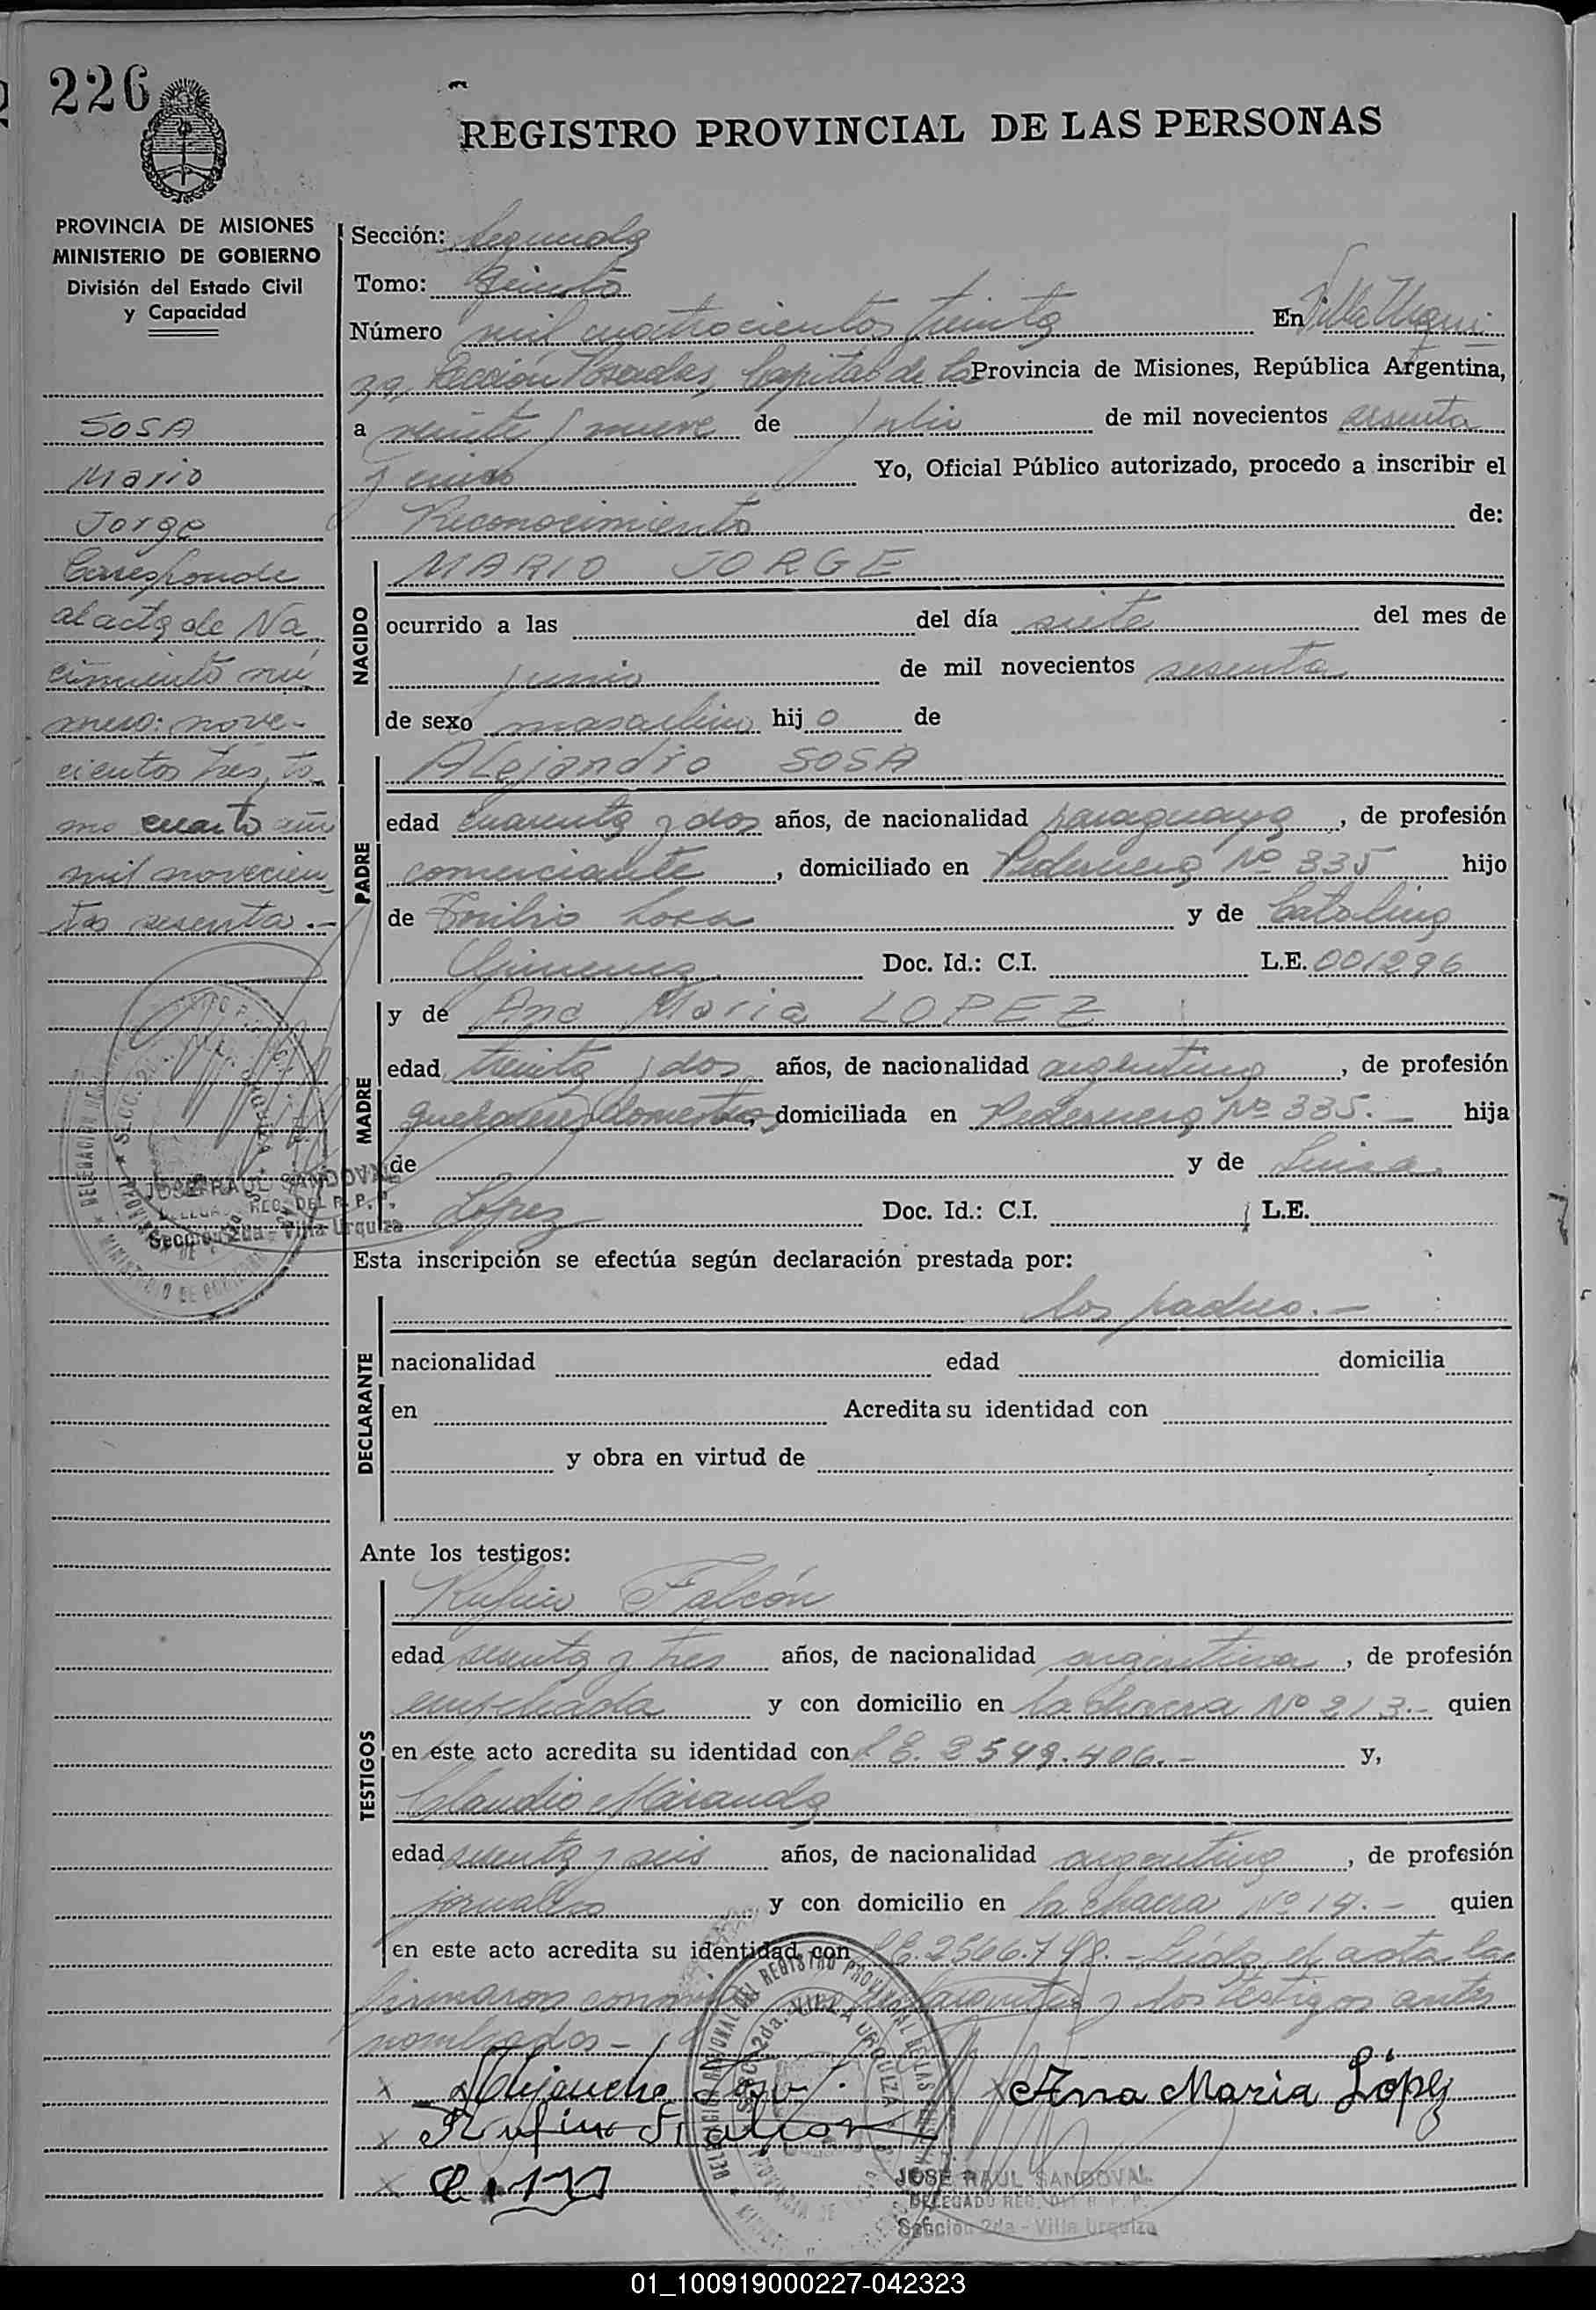 226
REGISTRO PROVINCIAL DE LAS PERSONAS
PROVINCIA DE MISIONES
MINISTERIO DE GOBIERNO
División del Estado Civil
y Capacidad
SOSA
Mario
Jorge
Corresponde
al acta de Na
cimiento nú
mero: nove-
cientos tres, to
mo cuarto año
mil novecien
tos sesenta.-
JOSE RAUL SANDOVAL
REG. DEL R. P. P.
Sección 2da - Villa Urquiza
Sección: Segunda
Tomo: Quinto
Número mil cuatrocientos treinta En Villa Urqui
za, Sección Posadas, Capital de la Provincia de Misiones, República Argentina,
a veinte y nueve de Julio de mil novecientos sesenta
y cinco Yo, Oficial Público autorizado, procedo a inscribir el
Reconocimiento de:
NACIDO
MARIO JORGE
ocurrido a las del día siete del mes de
junio de mil novecientos sesenta
de sexo masculino hijo de
PADRE
Alejandro SOSA
edad cuarenta y dos años, de nacionalidad paraguaya, de profesión
comerciante, domiciliado en Pedernera Nº 335 hijo
de Emilio Sosa y de Catalina
Gimenez Doc. Id.: C.I. L.E. 001296
MADRE
y de Ana Maria LOPEZ
edad treinta y dos años, de nacionalidad argentina, de profesión
quehaceres domesticos, domiciliada en Pedernera Nº 335.- hija
de y de Luisa
Lopez Doc. Id.: C.I. L.E.
Esta inscripción se efectúa según declaración prestada por:
DECLARANTE
los padres.-
nacionalidad edad domicilia
en Acredita su identidad con
y obra en virtud de
Ante los testigos:
TESTIGOS
Rufino Falcón
edad sesenta y tres años, de nacionalidad argentina, de profesión
empleado y con domicilio en la chacra Nº 213.- quien
en este acto acredita su identidad con L.E. 2549.406.- y,
Claudio Miranda
edad sesenta y seis años, de nacionalidad argentina, de profesión
jornalero y con domicilio en la chacra Nº 14.- quien
en este acto acredita su identidad con L.E. 2566.748.- Leída el acta la
firmaron conmigo declarantes y los testigos antes
nombrados.-
x Alejandro Sosa x Ana Maria López
x Rufino Falcon
x
DELEGACION REGIONAL DEL REGISTRO PROVINCIAL DE LAS
SECC. 2da. VILLA URQUIZA
JOSE RAUL SANDOVAL
DELEGADO REG. DEL R. P. P.
Sección 2da - Villa Urquiza
01_100919000227-042323